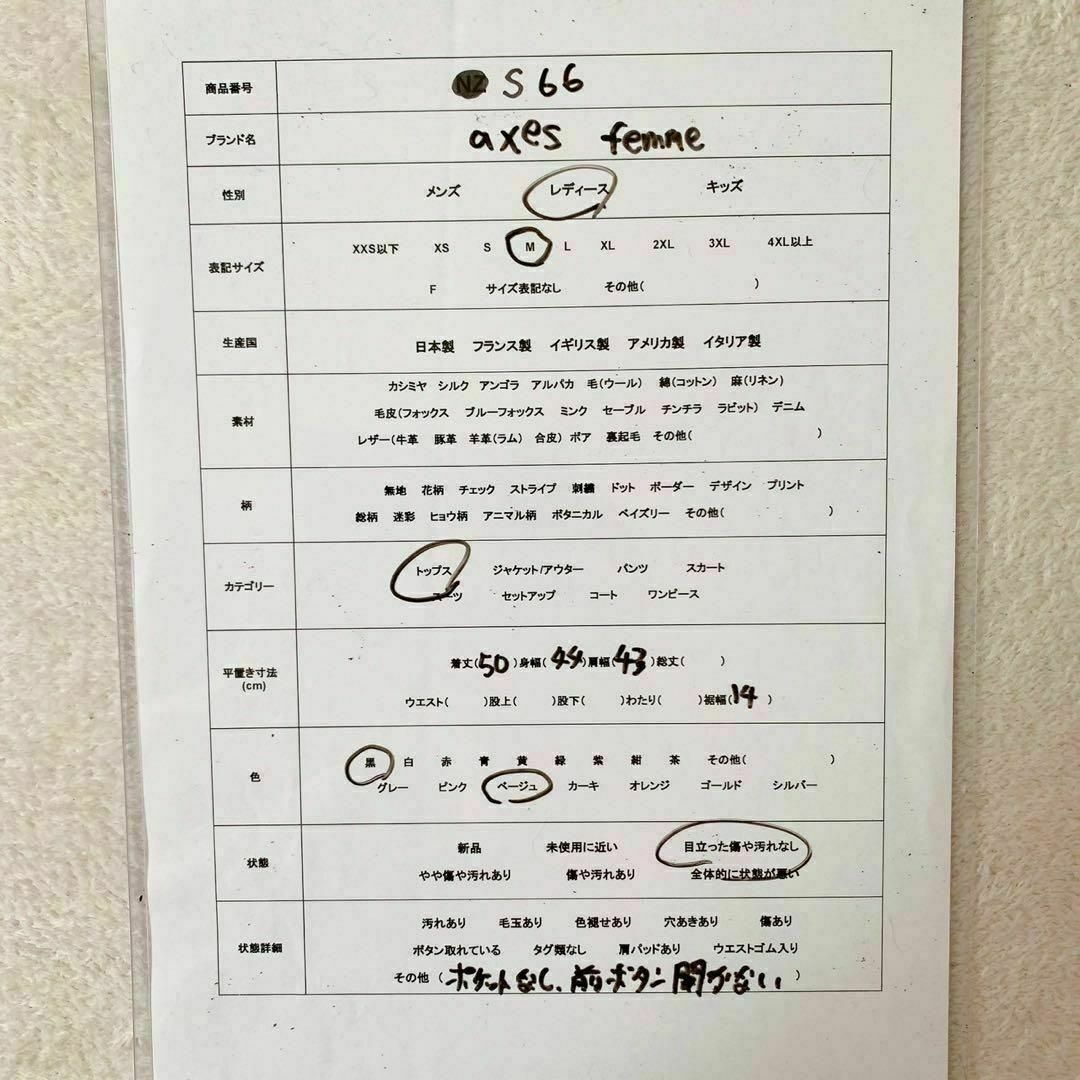 商品番号 NZ S 66
ブランド名 axes femme
性別 メンズ レディース キッズ
表記サイズ XXS以下 XS S M L XL 2XL 3XL 4XL以上
F サイズ表記なし その他( )
生産国 日本製 フランス製 イギリス製 アメリカ製 イタリア製
素材 カシミヤ シルク アンゴラ アルパカ 毛(ウール) 綿(コットン) 麻(リネン)
毛皮(フォックス ブルーフォックス ミンク セーブル チンチラ ラビット) デニム
レザー(牛革 豚革 羊革(ラム) 合皮) ボア 裏起毛 その他( )
柄 無地 花柄 チェック ストライプ 刺繍 ドット ボーダー デザイン プリント
総柄 迷彩 ヒョウ柄 アニマル柄 ボタニカル ペイズリー その他( )
カテゴリー トップス ジャケット/アウター パンツ スカート
スーツ セットアップ コート ワンピース
平置き寸法 (cm) 着丈(50)身幅(44)肩幅(43)総丈( )
ウエスト( )股上( )股下( )わたり( )裾幅(14)
色 黒 白 赤 青 黄 緑 紫 紺 茶 その他( )
グレー ピンク ベージュ カーキ オレンジ ゴールド シルバー
状態 新品 未使用に近い 目立った傷や汚れなし
やや傷や汚れあり 傷や汚れあり 全体的に状態が悪い
状態詳細 汚れあり 毛玉あり 色褪せあり 穴あきあり 傷あり
ボタン取れている タグ類なし 肩パッドあり ウエストゴム入り
その他 (ポケットなし、前ボタン開かない)